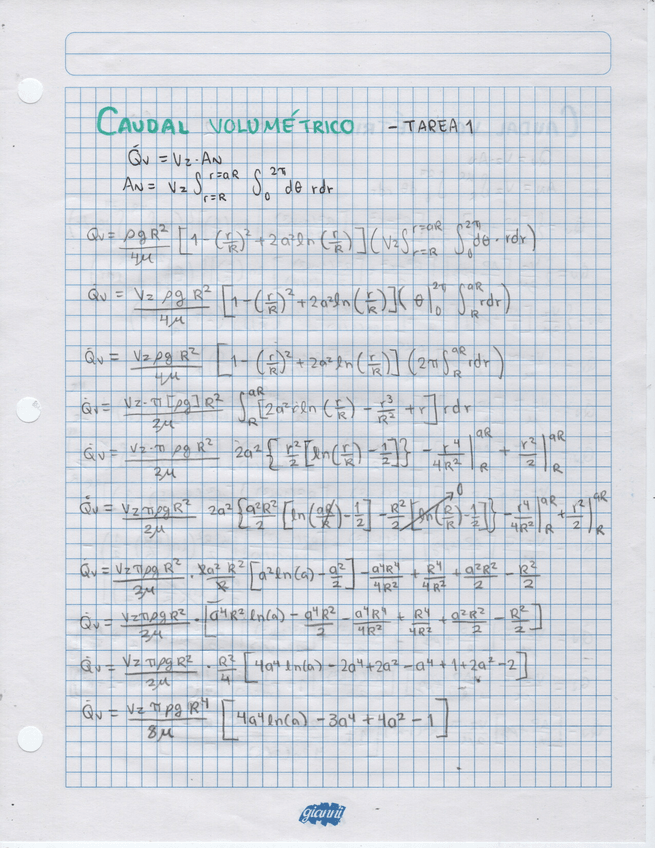 CAUDAL VOLUMÉTRICO - TAREA 1
Q̇v = Vz · AN
AN = Vz ∫_{r=R}^{r=aR} ∫_0^{2π} dθ rdr
Q̇v = ρgR²/4μ [1 - (r/R)² + 2a² ln (r/R)] (Vz ∫_{r=R}^{r=aR} ∫_0^{2π} dθ · rdr)
Q̇v = Vz ρg R²/4μ [1 - (r/R)² + 2a² ln (r/R)] (θ|_0^{2π} ∫_R^{aR} rdr)
Q̇v = Vz ρg R²/4μ [1 - (r/R)² + 2a² ln (r/R)] (2π ∫_R^{aR} rdr)
Q̇v = Vz·π[ρg]R²/2μ ∫_R^{aR} [2a² r ln (r/R) - r³/R² + r] rdr
Q̇v = Vz·π ρg R²/2μ 2a² { r²/2 [ln(r/R) - 1/2]} - r⁴/4R² |_R^{aR} + r²/2 |_R^{aR}
Q̇v = Vz πρg R²/2μ 2a² {a²R²/2 [ln(aR/R) - 1/2] - R²/2 [ln(R/R) - 1/2]} - r⁴/4R² |_R^{aR} + r²/2 |_R^{aR} 0
Q̇v = Vz πρg R²/2μ · 2a² R²/2 [a² ln(a) - a²/2] - a⁴R⁴/4R² + R⁴/4R² + a²R²/2 - R²/2
Q̇v = Vz πρg R²/2μ · [a⁴R² ln(a) - a⁴R²/2 - a⁴R⁴/4R² + R⁴/4R² + a²R²/2 - R²/2]
Q̇v = Vz πρg R²/2μ · R²/4 [4a⁴ ln(a) - 2a⁴ + 2a² - a⁴ + 1 + 2a² - 2]
Q̇v = Vz πρg R⁴/8μ [4a⁴ ln(a) - 3a⁴ + 4a² - 1]
gianni